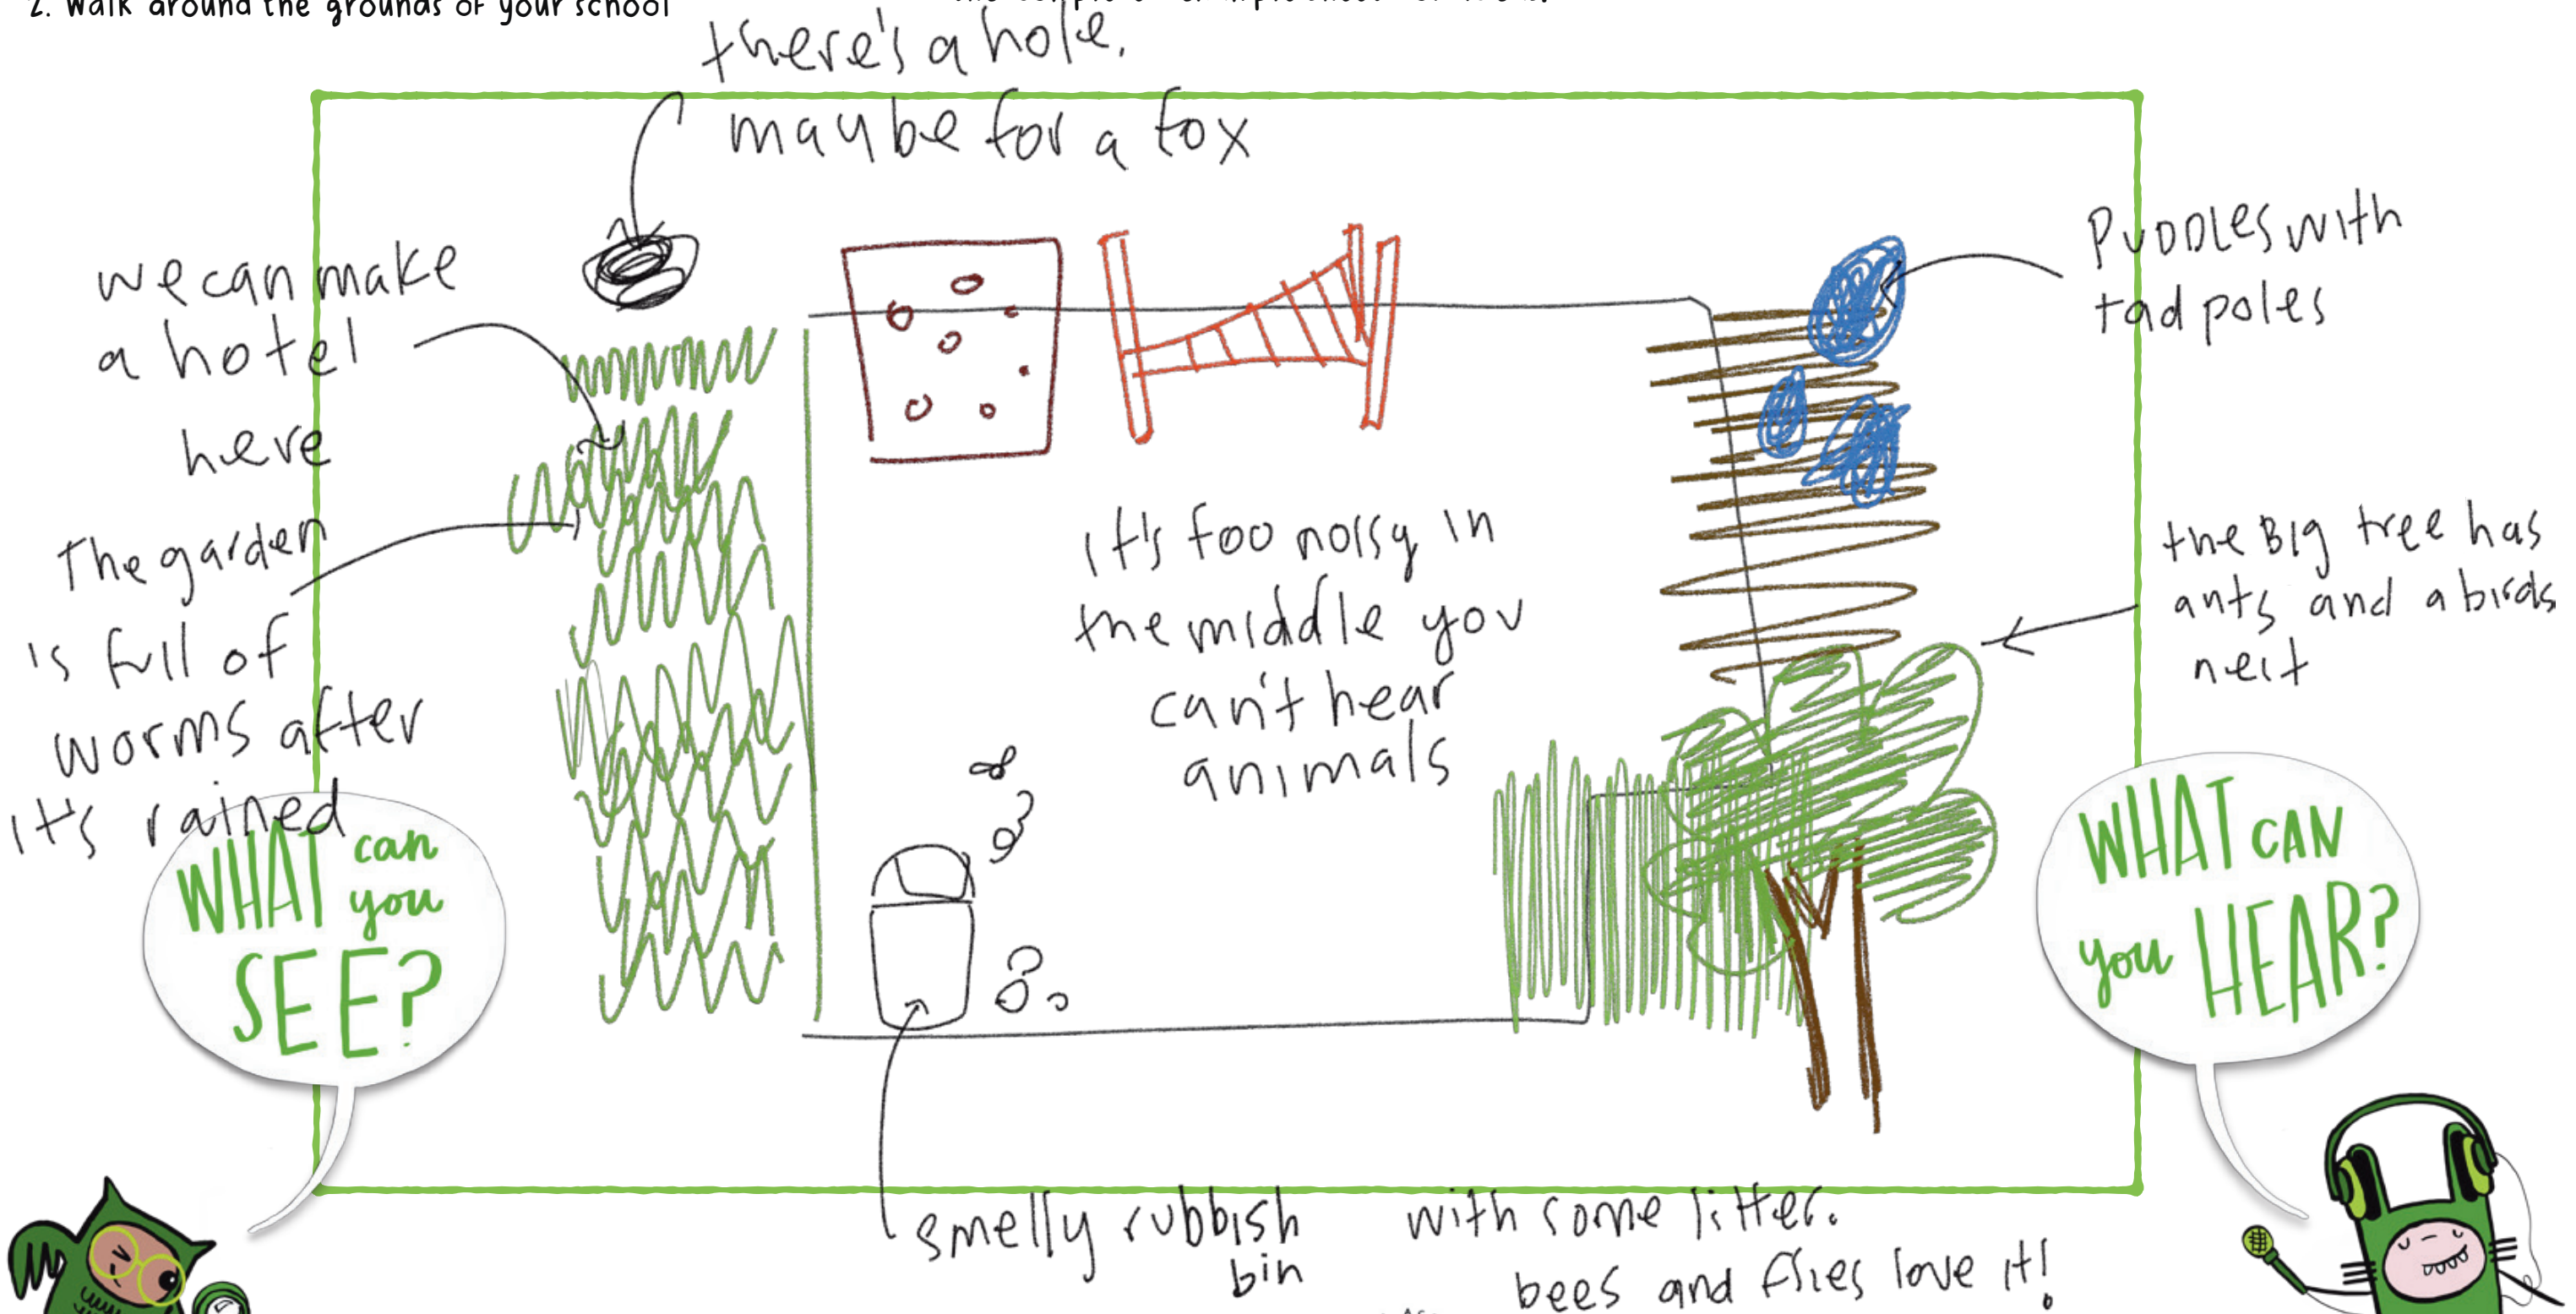 2. Walk around the grounds of your school
there's a hole.
maybe for a fox
we can make
a hotel
here
The garden
is full of
worms after
it's rained
PUDDLES with
tadpoles
it's too noisy in
the middle you
can't hear
animals
the Big tree has
ants and a birds
nest
WHAT can
you
SEE?
WHAT CAN
you HEAR?
smelly rubbish
bin
with some litter.
bees and flies love it!